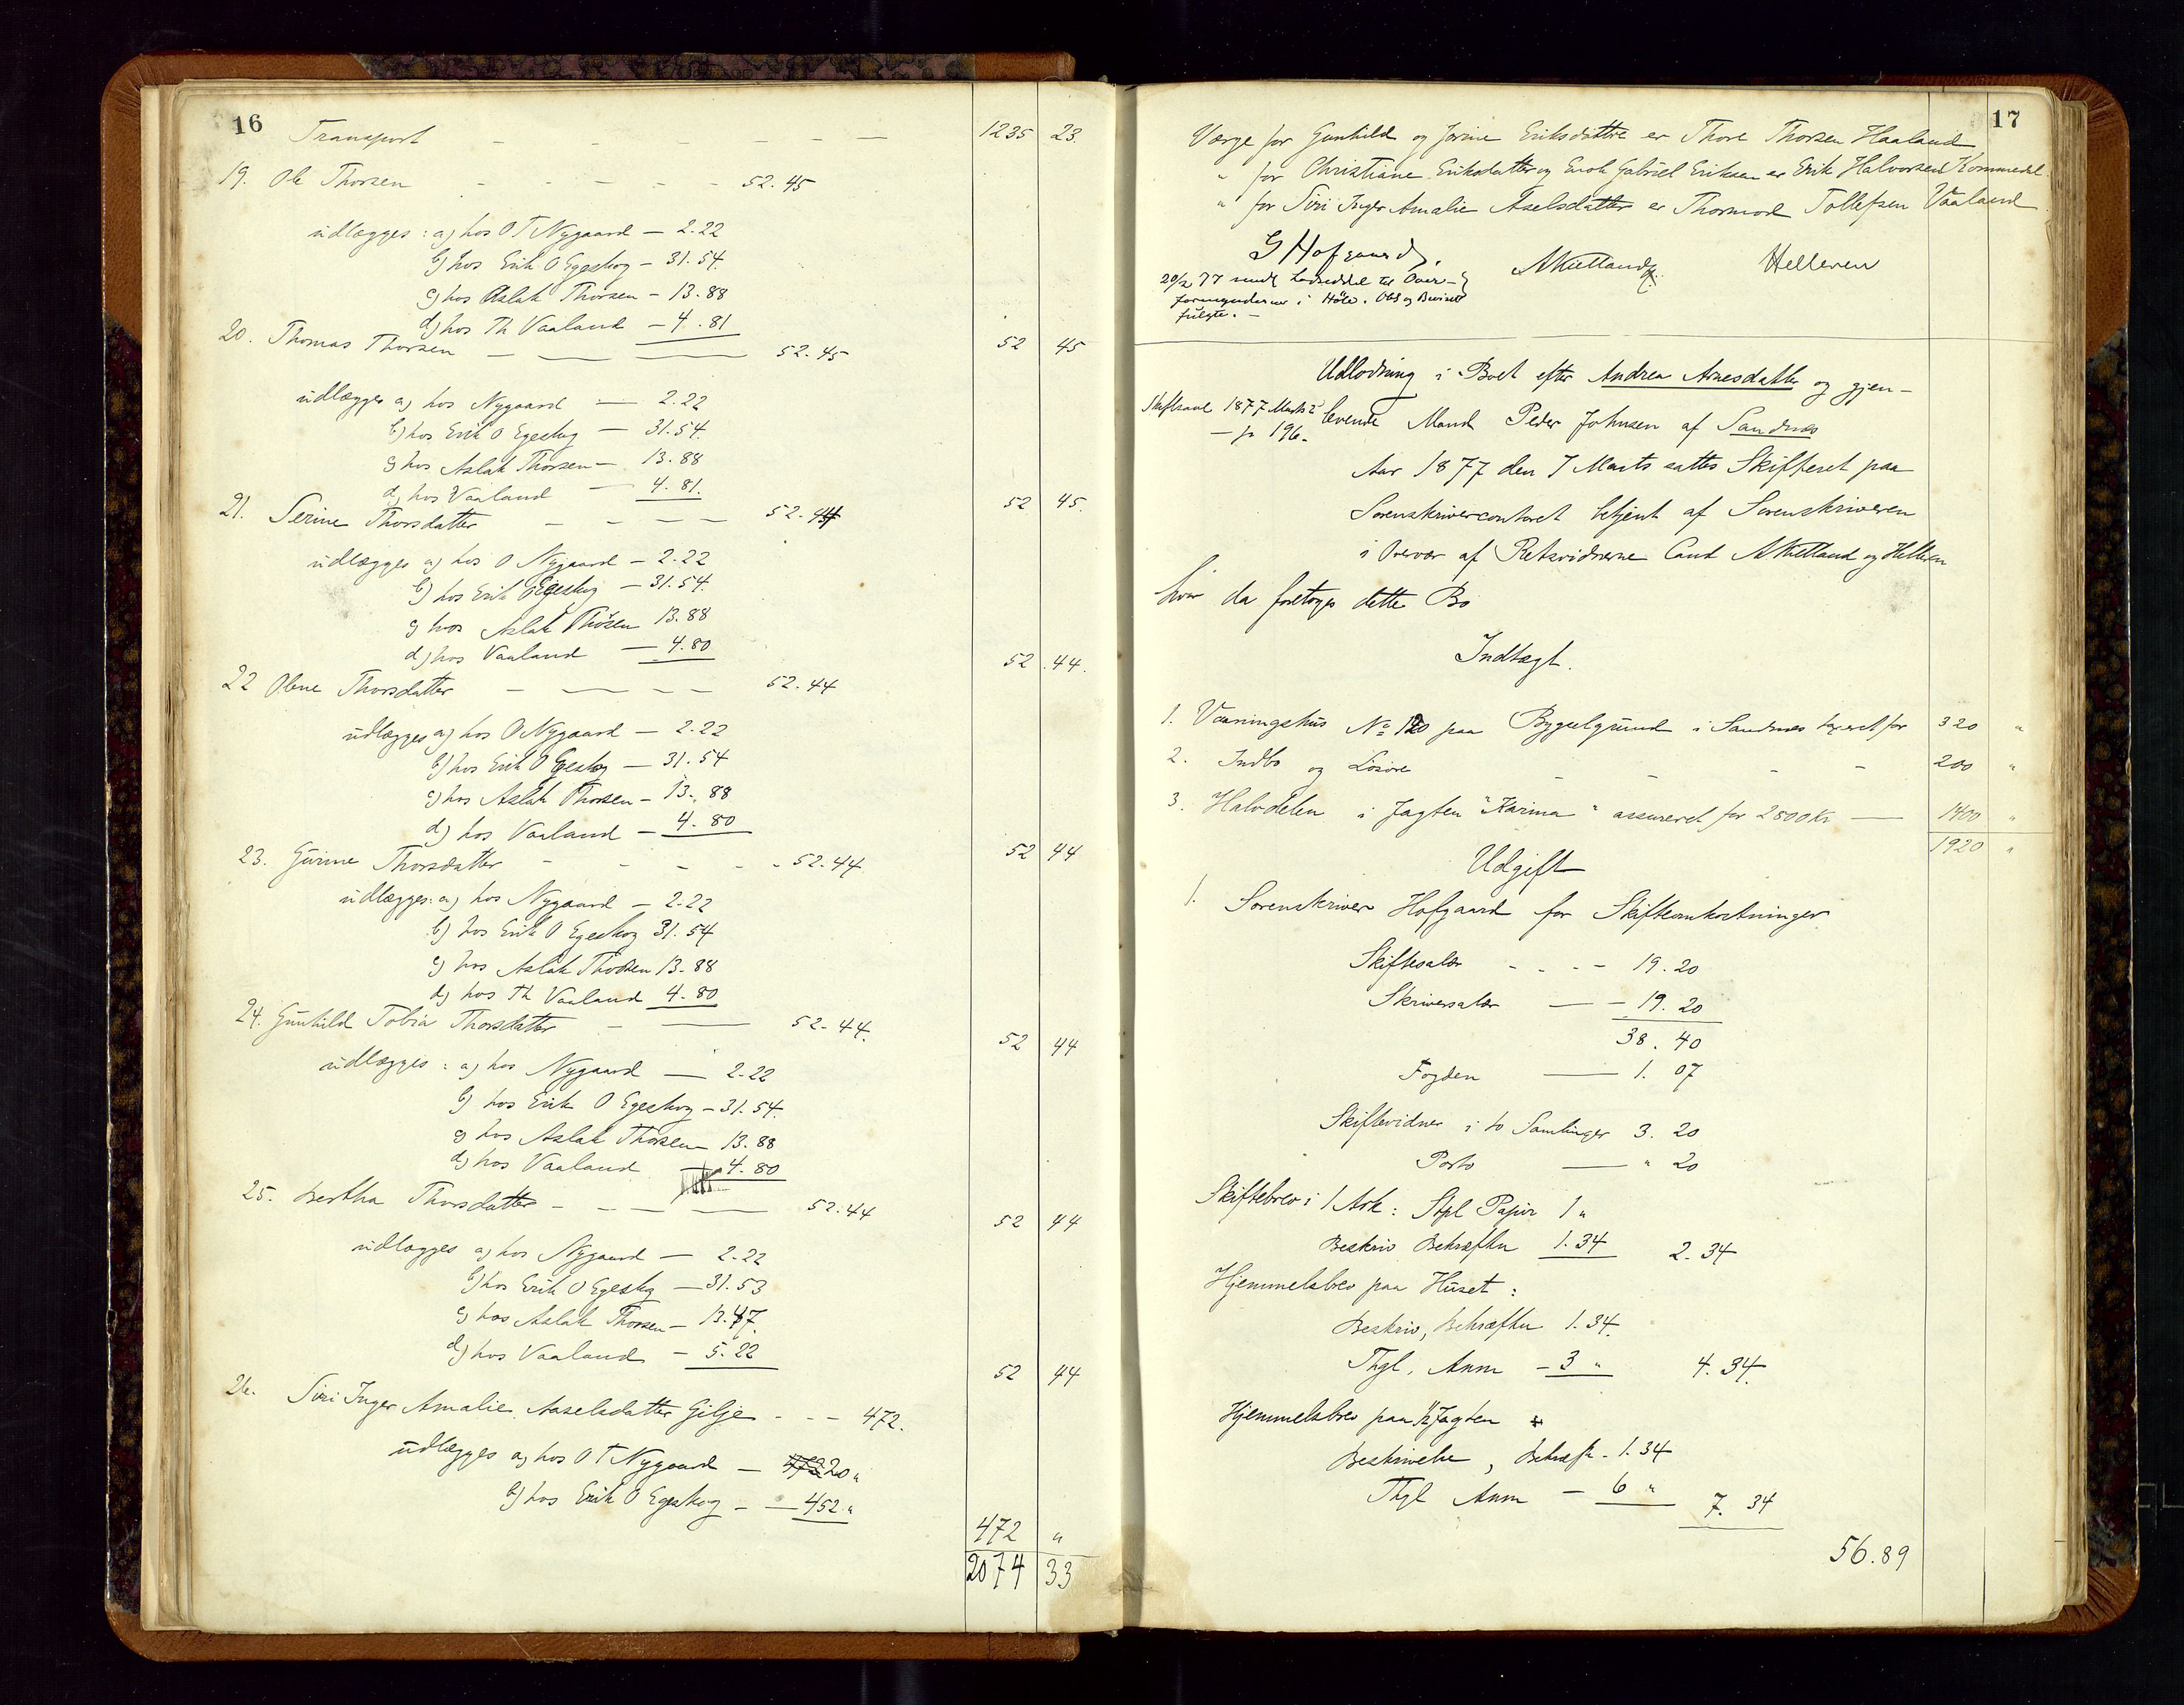 16
Transport - - - - - - 1235 23.
19. Ole Thorsen - - - - - 52.45
udlægges: a) hos O T Nygaard - 2.22
b) hos Erik O Egeskog - 31.54.
c) hos Aslak Thorsen - 13.88
d) hos Th Vaaland - 4.81
52 45
20. Thomas Thorsen - - - 52.45
udlægges a) hos Nygaard - 2.22
b) hos Erik O Egeskog - 31.54.
c) hos Aslak Thorsen - 13.88
d) hos Vaaland - 4.81.
52 45.
21. Serine Thorsdatter - - - - 52.44
udlægges a) hos O Nygaard - 2.22
b) hos Erik Egeskog - 31.54.
c) hos Aslak Thorsen 13.88
d) hos Vaaland - 4.80
52 44.
22 Olene Thorsdatter - - - - 52.44
udlægges a) hos O Nygaard - 2.22
b) hos Erik O Egeskog - 31.54
c) hos Aslak Thorsen - 13.88
d) hos Vaaland - 4.80
52 44
23. Gurine Thorsdatter - - - - 52.44
udlægges: a) hos Nygaard - 2.22
b) hos Erik O Egeskog 31.54
c) hos Aslak Thorsen 13.88
d) hos Th Vaaland 4.80
52 44
24. Gunhild Tobia Thorsdatter - - 52.44.
udlægges: a) hos Nygaard - 2.22
b) hos Erik O Egeskog - 31.54.
c) hos Aslak Thorsen - 13.88
d) hos Vaaland - 4.80
52 44
25. Bertha Thorsdatter - - - - 52.44
udlægges a) hos Nygaard - 2.22
b) hos Erik O Egeskog - 31.53
c) hos Aslak Thorsen - 13.47.
d) hos Vaaland - 5.22
52 44
26. Siri Inger Amalie Aselsdatter Gilje - - - 472.
udlægges a) hos O T Nygaard - 20 "
b) hos Erik O Egeskog - - 452 "
472 "
2074 33
17
Værge for Gunhild og Jorine Eriksdattre er Thore Thorsen Haaland
" for Christiane Eriksdatter og Enok Gabriel Eriksen er Erik Halvorsen Kommedal.
" for Siri Inger Amalie Aselsdatter er Thormod Tollefsen Vaaland.
G Hofgaard. AKielland Helleren
20/2 77 sendt Lodseddel til Over-
formynderne i Høle. Obl og Beviset
fulgte. -
Udlodning i Boet efter Andrea Arnesdatter og gjen-
Skiftesaml 1877 Marts 2
levende Mand Peder Johnsen af Sandnes
- p 196.
Aar 1877 den 7 Marts sattes Skifteret paa
Sorenskrivercontoret betjent af Sorenskriveren
i Overvær af Retsvidnerne Cand AKielland og Helleren
hvor da foretoges dette Bo
Indtægt.
1. Vaaningshus No 120 paa Bygselgrund i Sandnes taxeret for 320 "
2. Indbo og Løsøre - - - - 200 "
3. Halvdelen i Jagten "Karina" assureret for 2800 Kr - 1400 "
1920 "
Udgift
1. Sorenskriver Hofgaard for Skifteomkostninger
Skiftesalær - - - - 19.20
Skriversalær - - 19.20
38.40
Fogden - 1.07
Skiftevidner i to Samlinger 3.20
Porto - " 20
Skiftebrev i 1 Ark: Stpl Papir 1 "
Beskriv Bekræftn 1.34 2.34
Hjemmelsbrev paa Huset:
Beskriv, Bekræftn 1.34.
Thgl, Anm - 3 " 4.34.
Hjemmelsbrev paa 1/2 Jagten
Beskrivelse, Bekræft - 1.34
Thgl Anm - 6 " 7.34
56.89